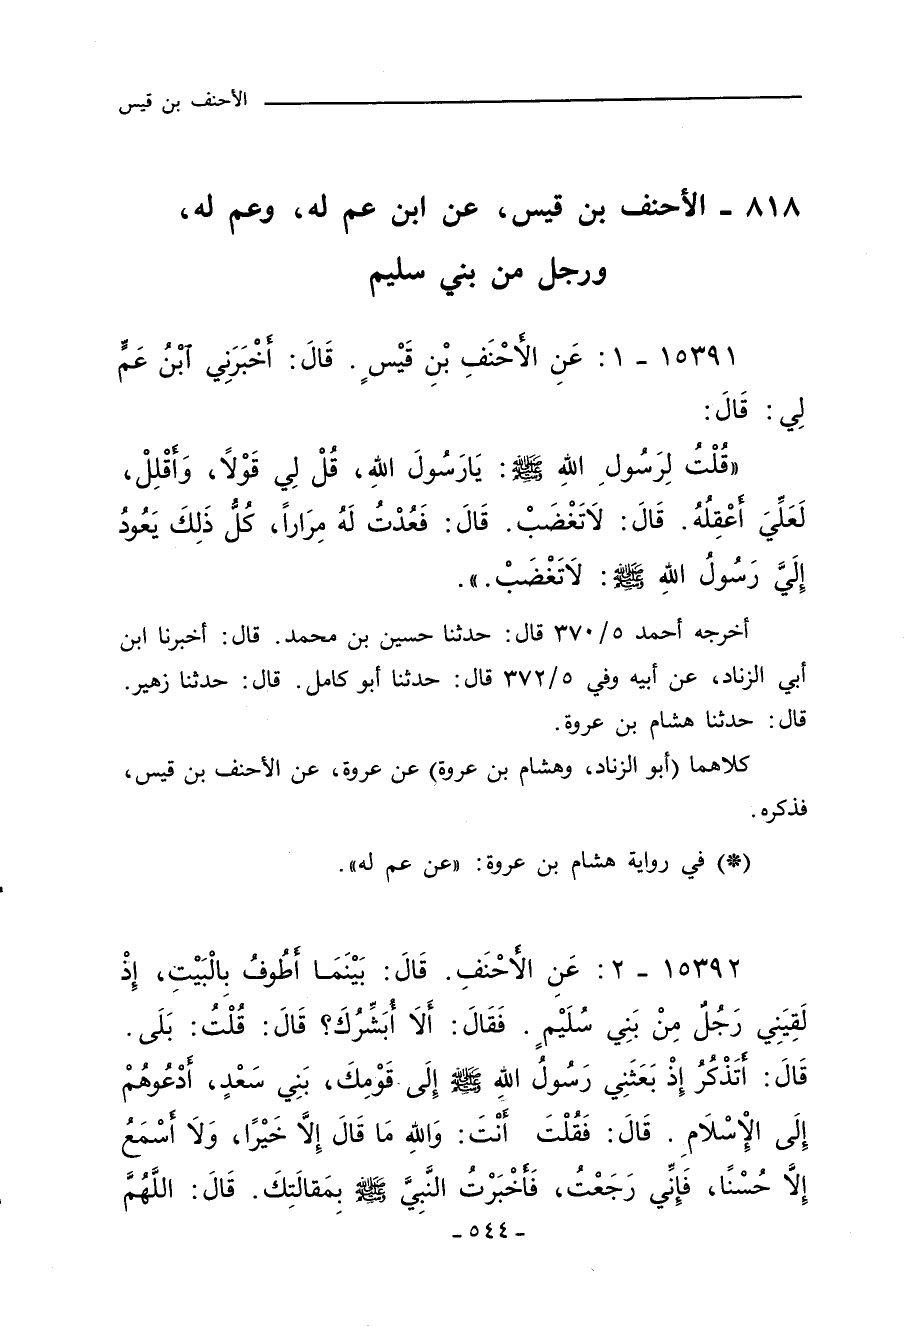 الأحنف بن قيس
٨١٨ ـ الأحنف بن قيس، عن ابن عم له، وعم له،
ورجل من بني سليم
١٥٣٩١ ـ ١: عَنِ الأَحْنَفِ بْنِ قَيْسٍ. قَالَ: أَخْبَرَنِي آبْنُ عَمٍّ
لِي: قَالَ:
«قُلْتُ لِرَسُولِ اللهِ ﷺ: يَارَسُولَ اللهِ، قُلْ لِي قَوْلاً، وَأَقْلِلْ،
لَعَلِّيَ أَعْقِلُهُ. قَالَ: لَاتَغْضَبْ. قَالَ: فَعُدْتُ لَهُ مِرَاراً، كُلُّ ذَلِكَ يَعُودُ
إِلَيَّ رَسُولُ اللهِ ﷺ: لَاتَغْضَبْ.».
أخرجه أحمد ٣٧٠/٥ قال: حدثنا حسين بن محمد. قال: أخبرنا ابن
أبي الزناد، عن أبيه وفي ٣٧٢/٥ قال: حدثنا أبو كامل. قال: حدثنا زهير.
قال: حدثنا هشام بن عروة.
كلاهما (أبو الزناد، وهشام بن عروة) عن عروة، عن الأحنف بن قيس،
فذكره.
(*) في رواية هشام بن عروة: «عن عم له».
١٥٣٩٢ ـ ٢: عَنِ الأَحْنَفِ. قَالَ: بَيْنَمَا أَطُوفُ بِالْبَيْتِ، إِذْ
لَقِيَنِي رَجُلٌ مِنْ بَنِي سُلَيْمٍ. فَقَالَ: أَلَا أُبَشِّرُكَ؟ قَالَ: قُلْتُ: بَلَى.
قَالَ: أَتَذْكُرُ إِذْ بَعَثَنِي رَسُولُ اللهِ ﷺ إِلَى قَوْمِكَ، بَنِي سَعْدٍ، أَدْعُوهُمْ
إِلَى الْإِسْلَامِ. قَالَ: فَقُلْتَ أَنْتَ: وَاللهِ مَا قَالَ إِلَّا خَيْرًا، وَلَا أَسْمَعُ
إِلَّا حُسْنًا، فَإِنِّي رَجَعْتُ، فَأَخْبَرْتُ النَّبِيَّ ﷺ بِمَقَالَتِكَ. قَالَ: اللَّهُمَّ
ـ ٥٤٤ ـ